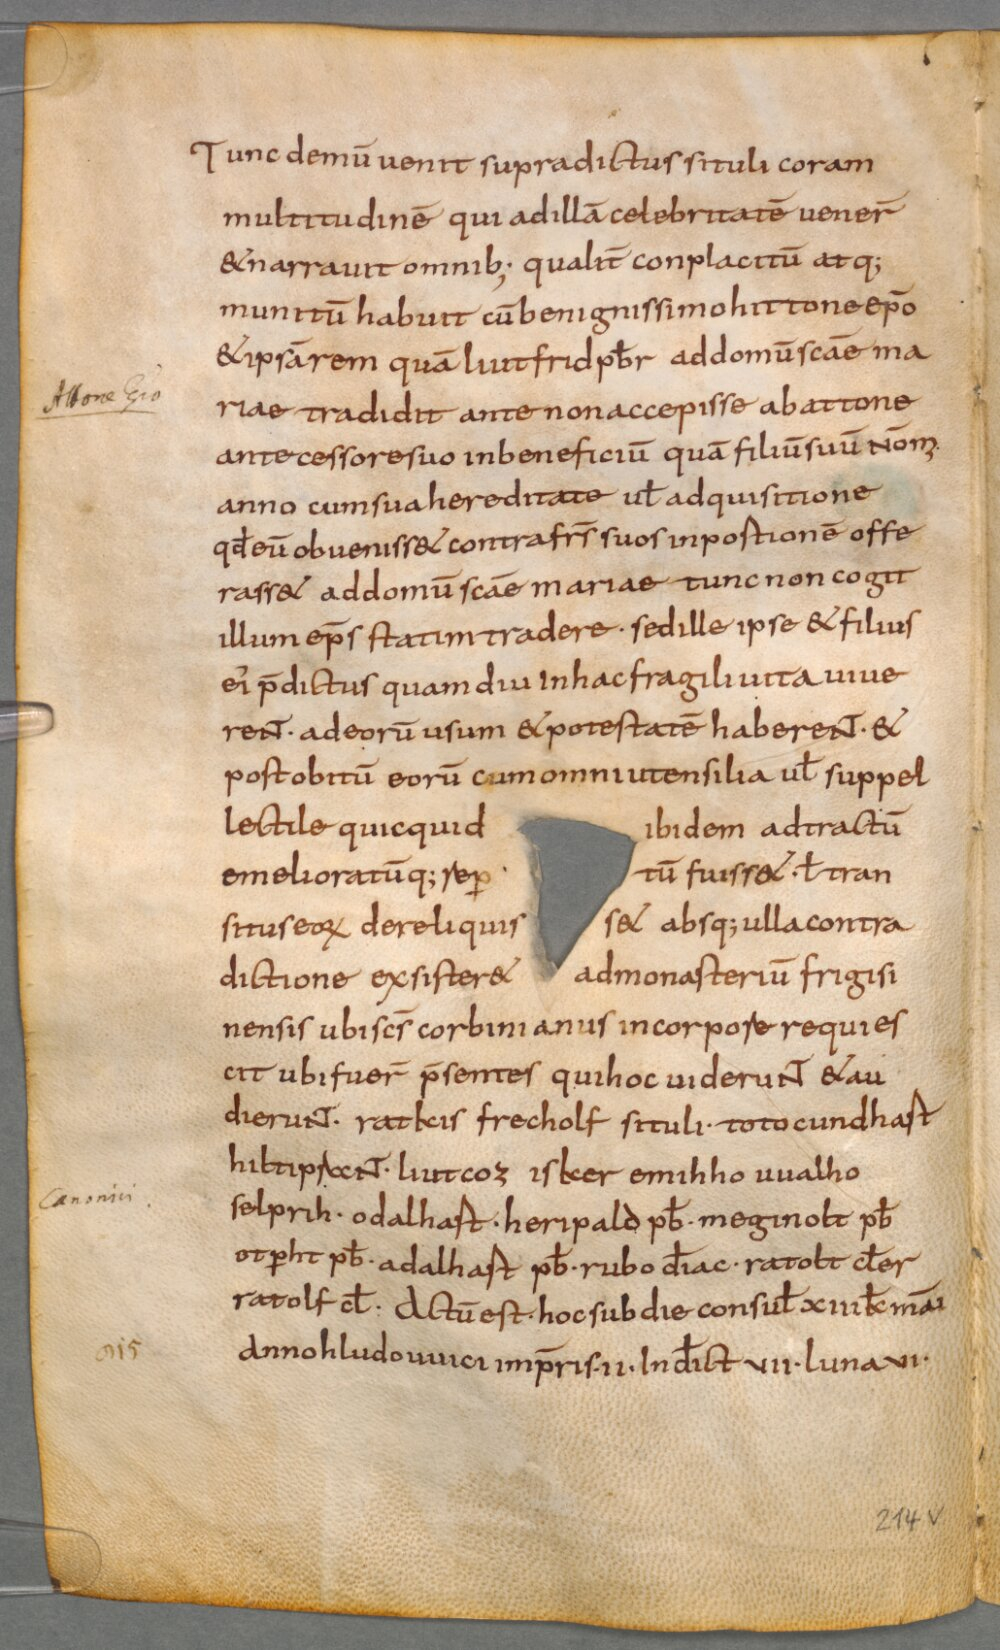 Tunc demū uenit supradictus situli coram
multitudinē qui adillā celebritatē uener̄
&narrauit omnib; qualit̄ conplacitū atq;
munitū habuit cū benignissimo hittone ep̄o
&ipsā rem quā liutfrid pb̄r ad domū sc̄ae ma
Attone Ep̄o
riae tradidit ante non accepisse ab attone
antecessore suo in beneficiū quā filiū suū Nōm
anno cum sua hereditate ul̄ adquisitione
qd̄ eū obueniss& contra fr̄s suos in postionē offe
rass& ad domū sc̄ae mariae tunc non cogit
illum ep̄s statim tradere · sed ille ipse & filius
ei p̄dictus quamdiu In hac fragili uita uiue
reNT · ad eorū usum & potestatē habereNT · &
post obitū eorū cum omni utensilia ul̄ suppel
lectile quicquid ibidem adtractū
emelioratūq; rep tū fuiss& · l̄ tran
situs eoꝝ de reliquis s& absq; ulla contra
dictione exsister& ad monasteriū frigisi
nensis ubi sc̄s corbinianus in corpore requies
cit ubi fuer̄ p̄sentes qui hoc uideruNT & au
dieruNT · ratkis frecholf situli · toto cundhast
hiltiprxNT · liutcoz isker emihho uualho
Canonici.
selprih · odalhast · heripald pb̄ · meginolt pb̄
otpht pb̄ · adalhast pb̄ · rubo d̄iac · ratolt cl̄er
ratolf cl̄ · Actū est · hoc sub die consul̄ xiiik̄ māi
815
Anno hludouuici imp̄ris · ii · Ind̄ict vii · luna vi ·
214 v